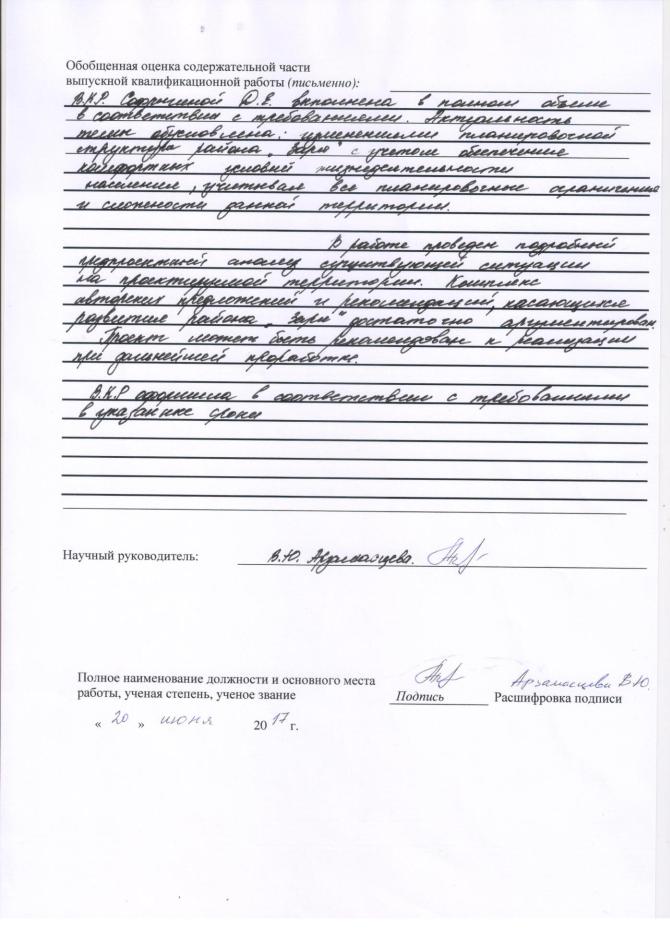 Обобщенная оценка содержательной части
выпускной квалификационной работы (письменно):
В.К.Р. Д.Е. выполнена в полном объеме
в соответствии с требованиями. Актуальность
темы обусловлена: планировочной
структуры района „Заря" с учетом обеспечение
комфортных условий жизнедеятельности
население, учитывая все планировочные ограничения
и сложности данной территории.
В работе проведен подробный
предпроектный анализ существующей ситуации
на проектируемой территории. Комплекс
авторских предложений и рекомендаций, касающихся
развитие района „Заря" достаточно аргументирован.
Проект может быть рекомендован к реализации
при дальнейшей проработке.
В.К.Р оформлена в соответствии с требованиями
в указанные сроки
Научный руководитель: В.Ю. Арзамасцева.
Полное наименование должности и основного места
работы, ученая степень, ученое звание
Арзамасцева В.Ю.
Подпись Расшифровка подписи
« 20 » июня 2017 г.